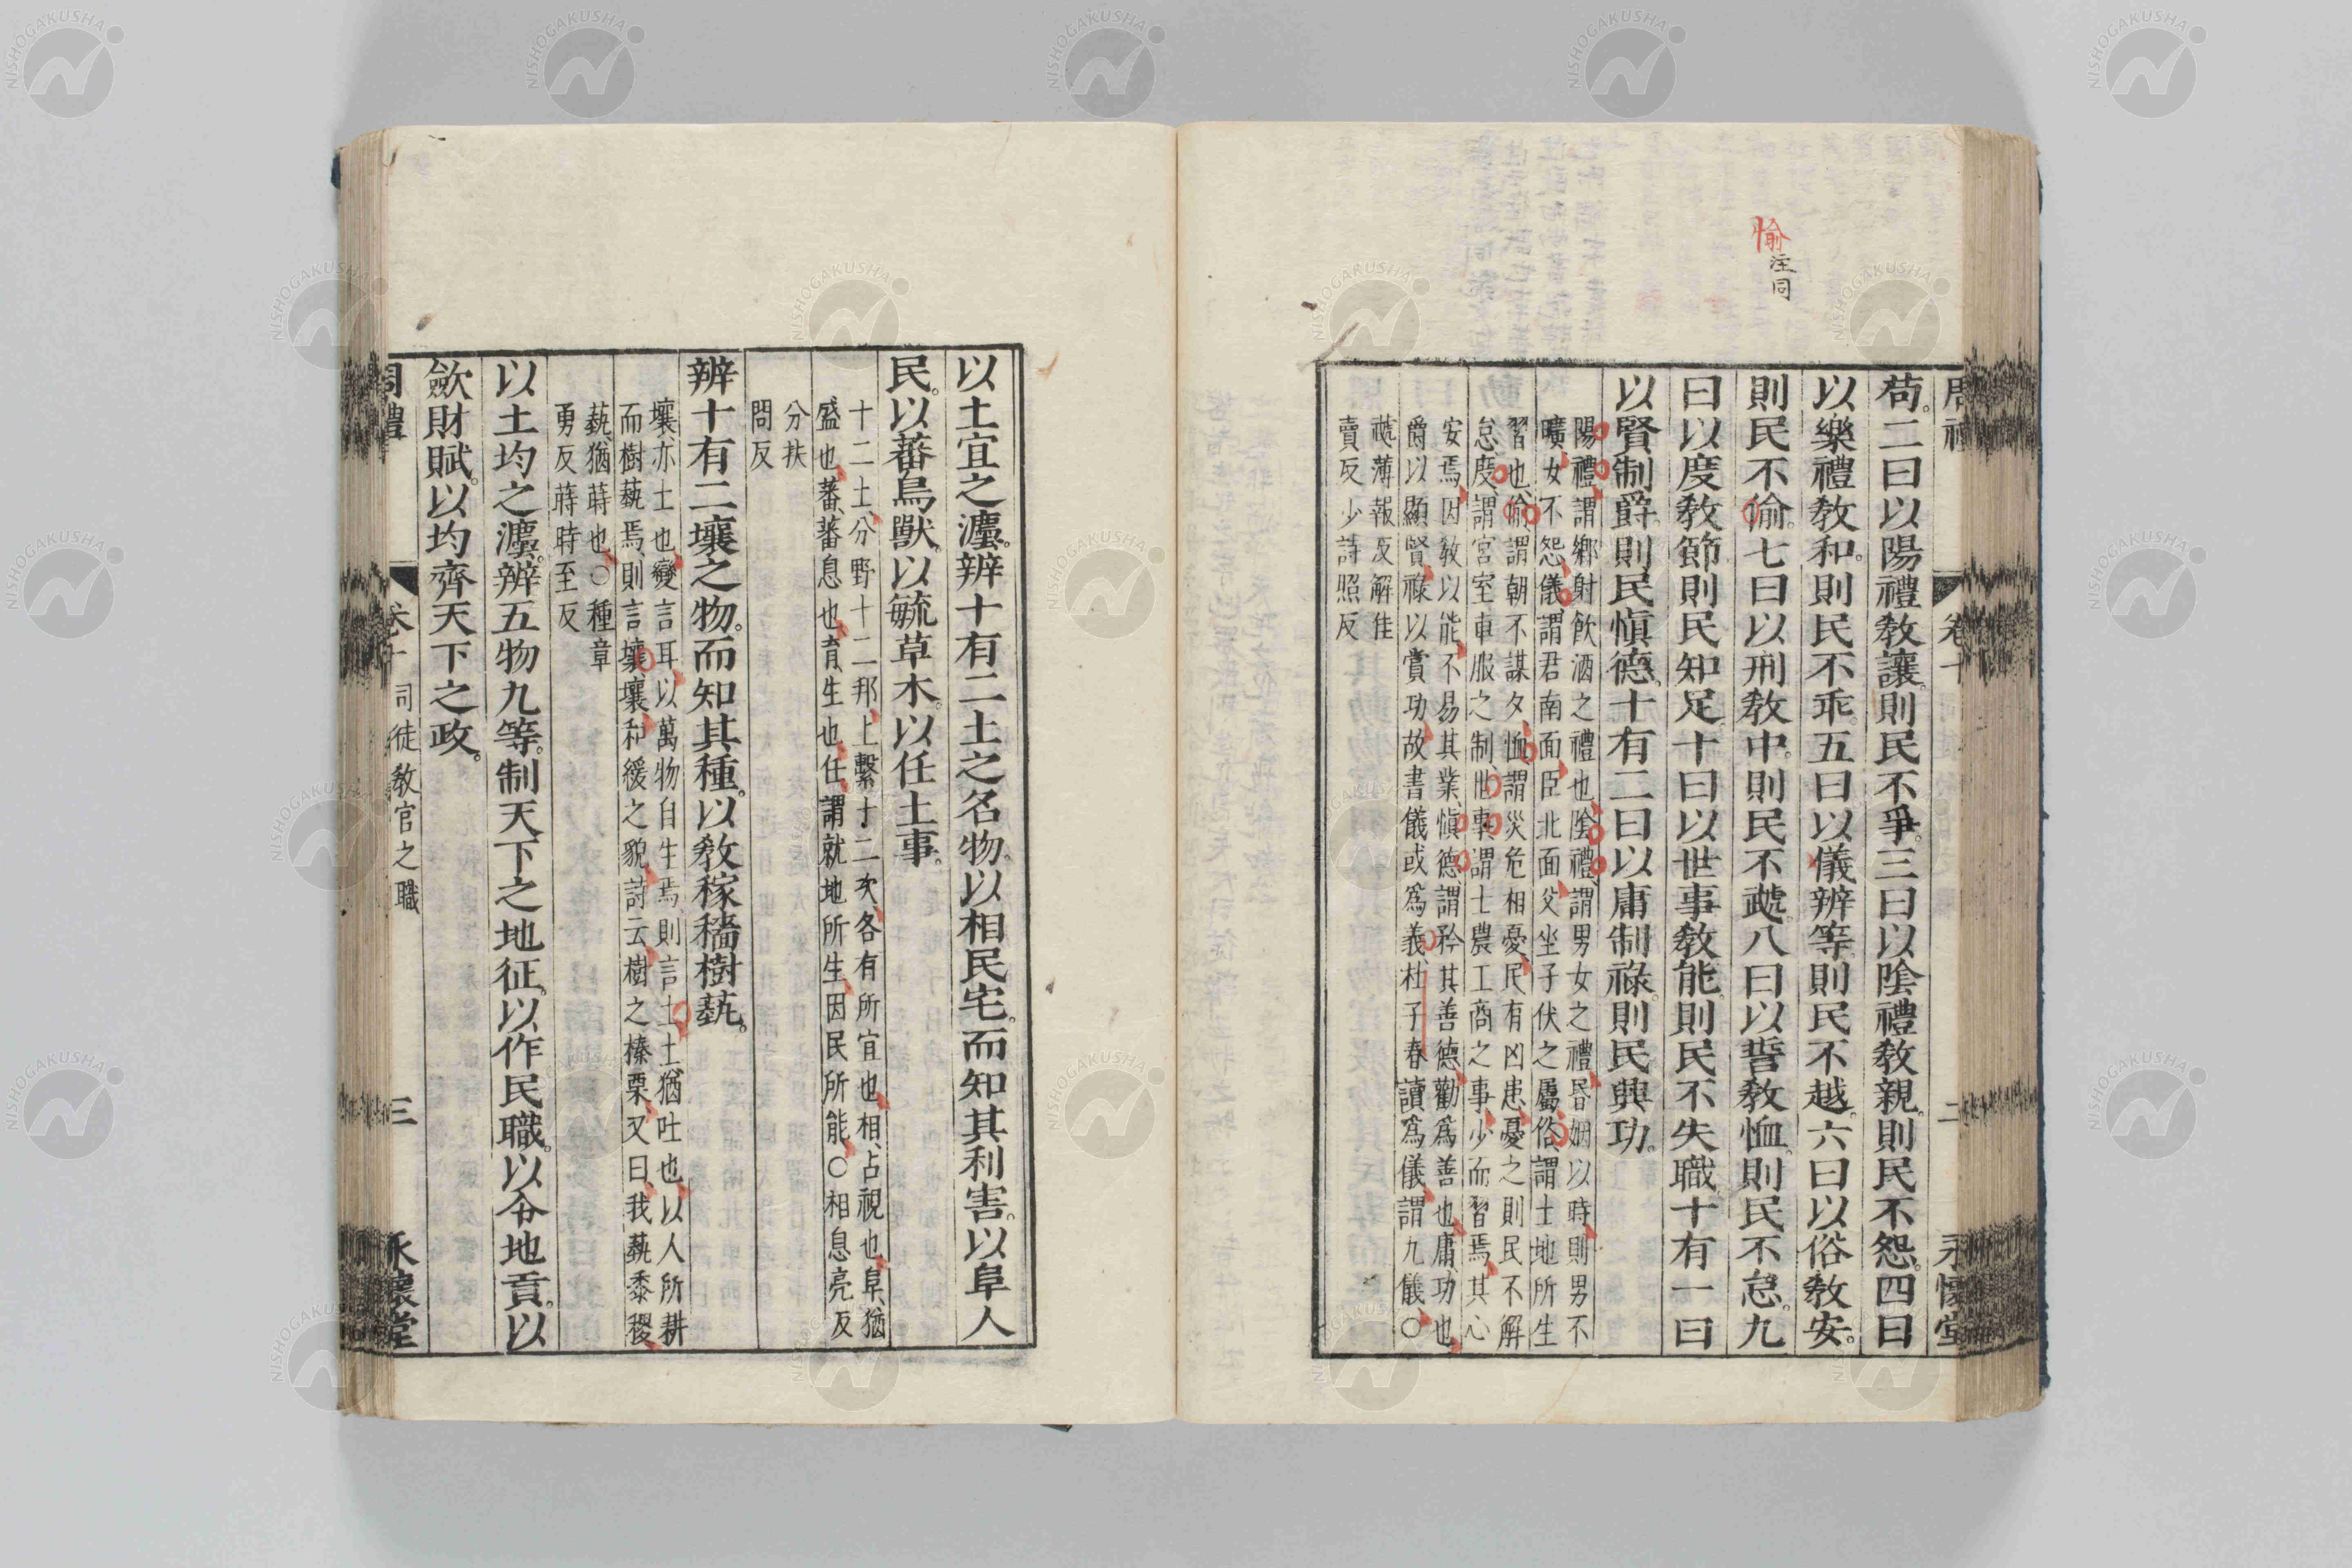 愉
注同
周禮 卷十 二 永懷堂
苟。二曰以陽禮敎讓。則民不爭。三曰以陰禮敎親。則民不怨。四曰
以樂禮敎和。則民不乖。五曰以儀辨等。則民不越。六曰以俗敎安。
則民不偷。七曰以刑敎中。則民不虣。八曰以誓敎恤。則民不怠。九
曰以度敎節。則民知足。十曰以世事敎能。則民不失職。十有一曰
以賢制爵。則民愼德。十有二曰以庸制祿。則民興功。
陽禮、謂鄉射飲酒之禮也陰禮、謂男女之禮昏姻以時則男不
曠女不怨儀、謂君南面臣北面父坐子伏之屬俗、謂土地所生
習也、偷、謂朝不謀夕、恤、謂災危相憂、民有凶患憂之則民不解
怠、度、謂宮室車服之制、世事、謂士農工商之事少而習焉其心
安焉因敎以能不易其業、愼德、謂矜其善德勸爲善也庸功也
爵以顯賢祿以賞功故書儀或爲義杜子春讀爲儀謂九儀○
虣薄報反解佳
賣反少詩照反
以土宜之灋。辨十有二土之名物。以相民宅。而知其利害。以阜人
民。以蕃鳥獸。以毓草木。以任土事。
十二土、分野十二邦、上繫十二次、各有所宜也相、占視也阜、猶
盛也蕃、蕃息也育、生也任、謂就地所生因民所能○相息亮反
分扶
問反
辨十有二壤之物。而知其種。以敎稼穡樹蓺。
壤、亦土也變言耳以萬物自生焉、則言土土、猶吐也以人所耕
而樹蓺焉、則言壤壤、和緩之貌詩云樹之榛栗又曰、我蓺黍稷
蓺、猶蒔也○種章
勇反蒔時至反
以土均之灋。辨五物九等。制天下之地征。以作民職。以令地貢。以
歛財賦。以均齊天下之政。
周禮 卷十 司徒敎官之職 三 永懷堂